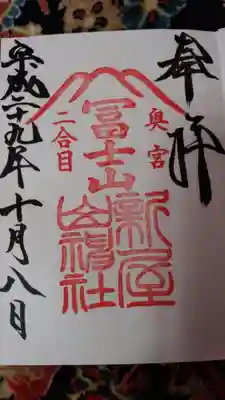 奉拝
奥宮
冨士山
二合目
新屋
山神社
平成二十九年十月八日